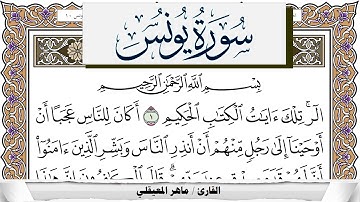 سُورَةُ يُونُسَ
بِسْمِ اللَّهِ الرَّحْمَٰنِ الرَّحِيمِ
الٓر ۚ تِلْكَ ءَايَٰتُ ٱلْكِتَٰبِ ٱلْحَكِيمِ ١ أَكَانَ لِلنَّاسِ عَجَبًا أَنْ
أَوْحَيْنَآ إِلَىٰ رَجُلٍ مِّنْهُمْ أَنْ أَنذِرِ ٱلنَّاسَ وَبَشِّرِ ٱلَّذِينَ ءَامَنُوٓا۟
القارئ / ماهر المعيقلي